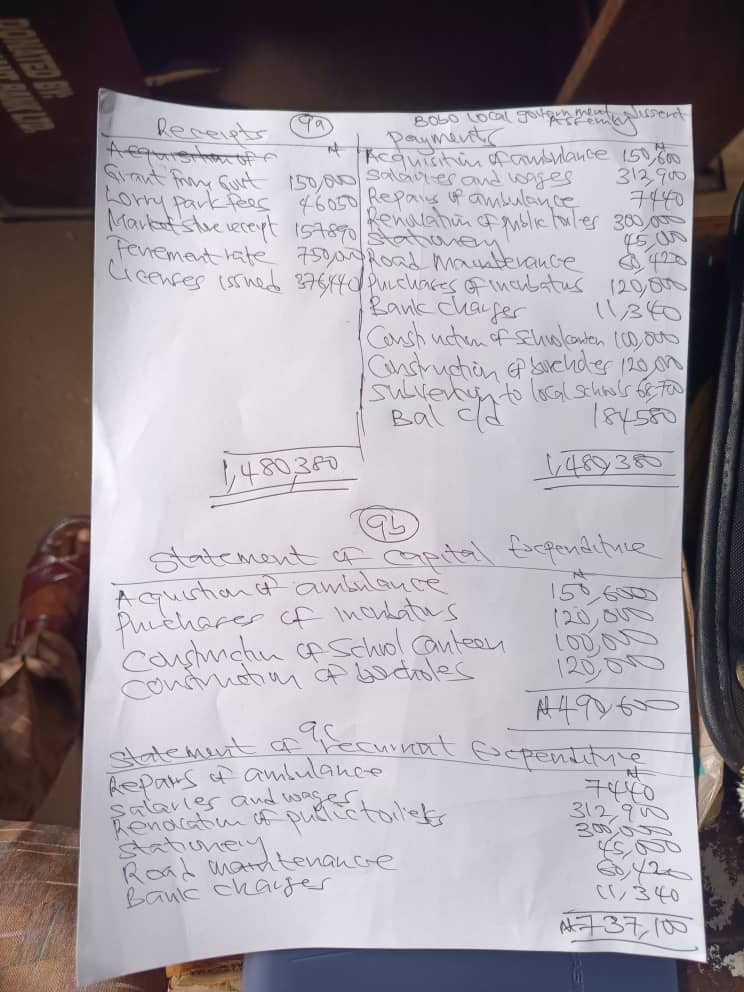 DONATED BY:
BANK LTD.
9a
Bobo Local government District Assembly
Receipts
₦
Grant from Govt 150,000
Lorry park fees 46050
Market store receipt 157890
Tenement rate 750,000
Licenses issued 376,440
1,480,380
Payments
₦
Acquisition of ambulance 150,600
Salaries and wages 312,900
Repairs of ambulance 7440
Renovation of public toiles 300,000
Stationery 45,000
Road maintenance 60,420
Purchases of incubatus 120,000
Bank charges 11,340
Construction of School canten 100,000
Construction of boreholes 120,000
Subvention to local schools 68,100
Bal c/d 184580
1,480,380
9b
Statement of Capital Expenditure
₦
Acquistion of ambulance 150,600
Purchases of incubatus 120,000
Construction of School Canteen 100,000
Construction of boreholes 120,000
₦490,600
9c
Statement of recurrent Expenditure
₦
Repairs of ambulance 7440
Salaries and wages 312,900
Renovation of public toilets 300,000
Stationery 45,000
Road maintenance 60,420
Bank charges 11,340
₦737,100